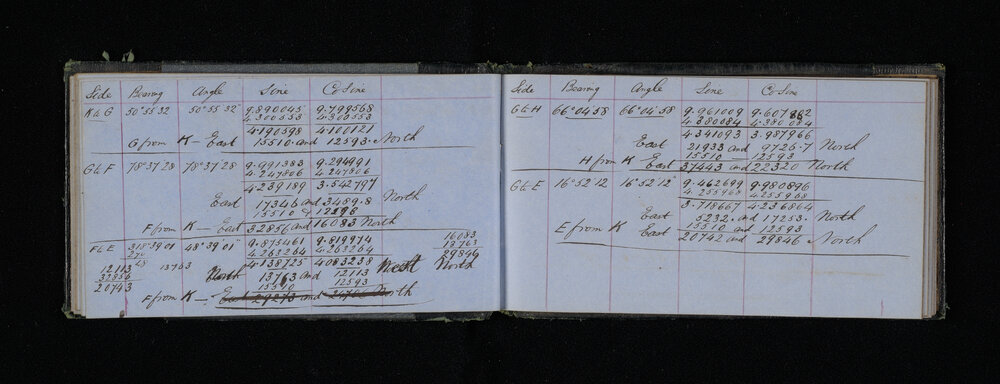 Side Bearing Angle Sine CoSine
K to G 50°55'32 50°55'32" 9.890045 9.799568
4.300553 4.300553
4.190598 4.100121
G from K — East 15510 and 12593. North
G to F 78°37'28 78°37'28 9.991383 9.294991
4.247806 4.247806
4.239189 3.542797
East 17346 and 3489.8 North
15510 & 12593
F from K — East 32856 and 16083 North
F to E 318°39'01 48°39'01" 9.875461 9.819974
270 4.263264 4.263264
48 4.138725 4.083238
16083
13763
29846
12113
32856
20743
13763
North 13763 and 12113 West North
15510 12593
F from K — East 29273 and North
Side Bearing Angle Sine CoSine
G to H 66°04'58 66°04'58 9.961009 9.607882
4.380084 4.380084
4.341093 3.987966
East 21933 and 9726.7 North
15510 — 12593
H from K — East 37443 and 22320 North
G to E 16°52'12 16°52'12" 9.462699 9.980896
4.255968 4.255968
3.718667 4.236864
East 5232. and 17253. North
15510 and 12593
E from K East 20742 and 29846 North